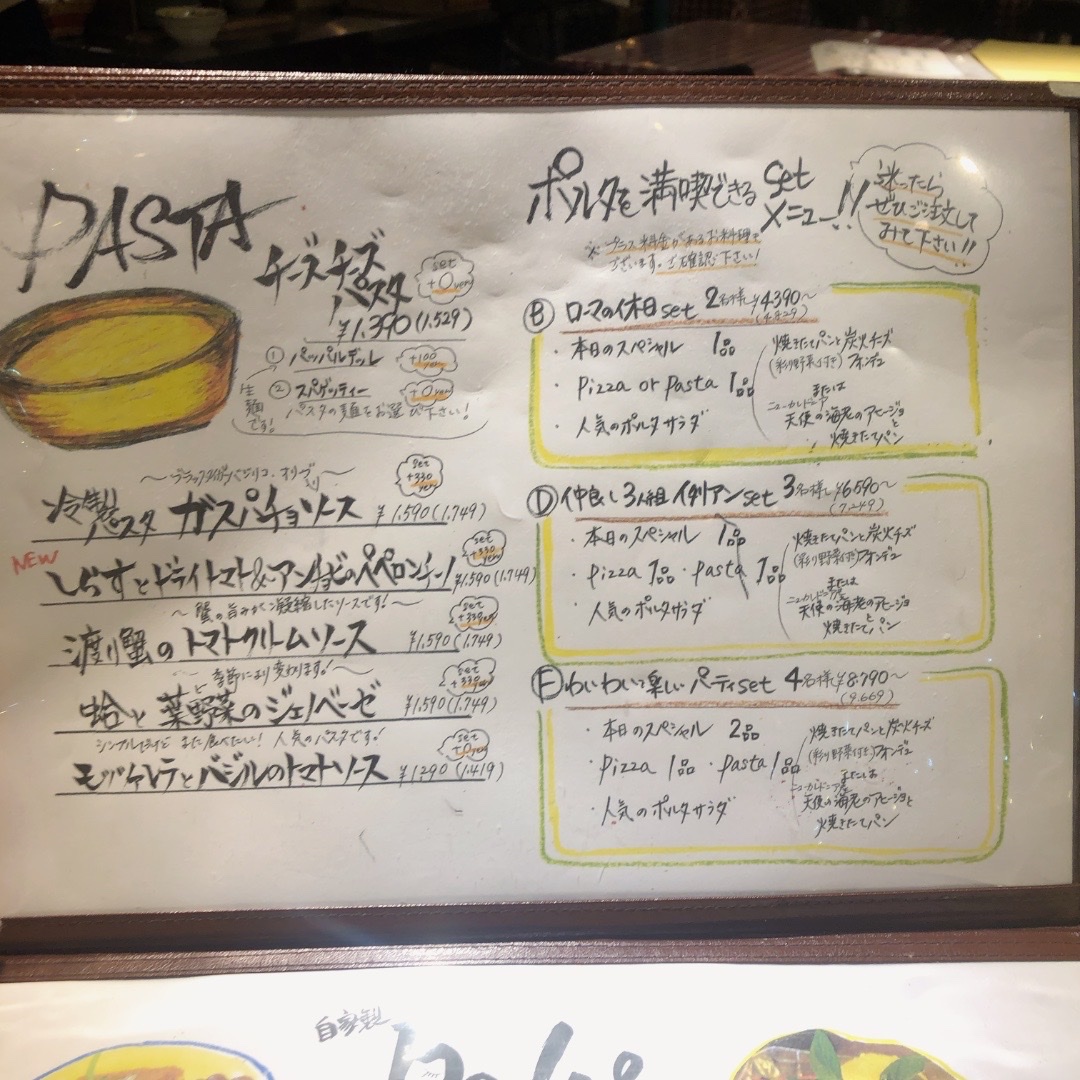 PASTA
チーズチーズ
パスタ
set
+0yen
¥1.390(1.529)
① パッパルデッレ
+100yen
② スパゲッティー
+0yen
生麺です!
パスタの麺をお選び下さい!
set
+330
yen
冷製
パスタ ガスパチョソース ¥1.590(1.749)
NEW
しらすとドライトマト&アンチョビのペペロンチーノ ¥1.590(1.749)
set
+330yen
~蟹の旨みがぐ凝縮したソースです!~
渡り蟹のトマトクリームソース ¥1.590(1.749)
set
+330yen
~季節により変わります!~
蛤と葉野菜のジェノベーゼ ¥1.590(1.749)
set
+330yen
シンプルだけど また食べたい! 人気のパスタです!
モッツァレラとバジルのトマトソース ¥1290(1.419)
set
+0yen
ポルタを満喫できる set
メニュー!!
迷ったら
ぜひご注文して
みて下さい!!
※プラス料金があるお料理も
ございます。ご確認下さい!
Ⓑ ローマの休日set 2名様 ¥4.390~
・本日のスペシャル 1品
・pizza or pasta 1品
・人気のポルタサラダ
焼きたてパンと炭火チーズ
(彩り野菜付き)フォンデュ
または
ニューカレドニア
天使の海老のアヒージョ
と
焼きたてパン
Ⓓ 仲良し3人組 イタリアンset 3名様 ¥6.590~
(7.249)
・本日のスペシャル 1品
・pizza 1品・pasta 1品
・人気のポルタサラダ
焼きたてパンと炭火チーズ
(彩り野菜付き)フォンデュ
または
ニューカレドニア産
天使の海老のアヒージョ
と
焼きたてパン
Ⓔ わいわい楽しい パーティset 4名様 ¥8.790~
(9.669)
・本日のスペシャル 2品
・pizza 1品・pasta 1品
・人気のポルタサラダ
焼きたてパンと炭火チーズ
(彩り野菜付き)フォンデュ
または
ニューカレドニア産
天使の海老のアヒージョと
焼きたてパン
自家製